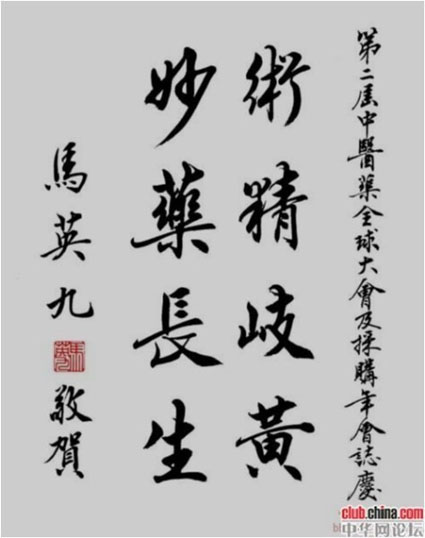 第二屆中醫藥全球大會及採購年會誌慶
術精岐黃
妙藥長生
馬英九
敬賀
club.china.com
中华网论坛